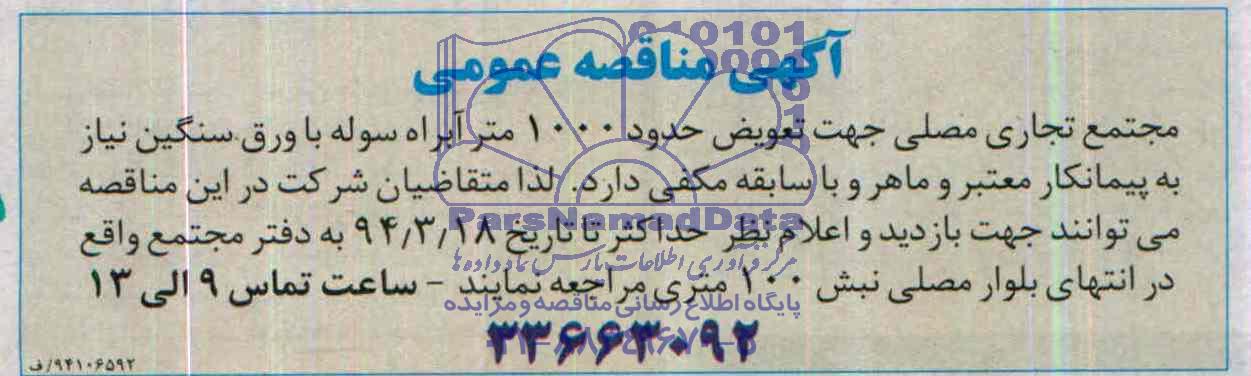 آگهی مناقصه عمومی
مجتمع تجاری مصلی جهت تعویض حدود ۱۰۰۰ متر آبراه سوله با ورق سنگین نیاز
به پیمانکار معتبر و ماهر و با سابقه مکفی دارد. لذا متقاضیان شرکت در این مناقصه
می توانند جهت بازدید و اعلام نظر حداکثر تا تاریخ ۹۴/۳/۱۸ به دفتر مجتمع واقع
در انتهای بلوار مصلی نبش ۱۰۰ متری مراجعه نمایند - ساعت تماس ۹ الی ۱۳
۳۳۶۶۳۰۹۲
۹۴۱۰۶۵۹۲/ف
ParsNamadData
مرکز فرآوری اطلاعات پارس نماد داده ها
پایگاه اطلاع رسانی مناقصه و مزایده